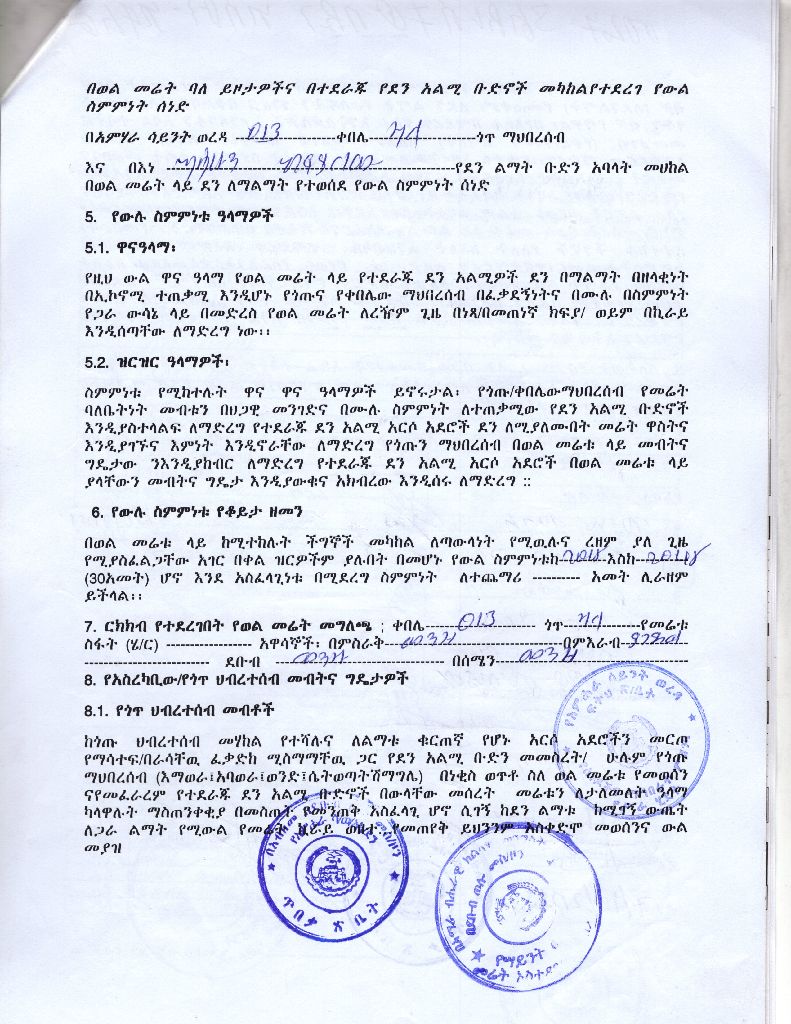 በወል መሬት ባለ ይዞታዎችና በተደራጁ የደን አልሚ ቡድኖች መካከልየተደረገ የውል
ስምምነት ሰነድ
በአምሃራ ሳይንት ወረዳ 013 ቀበሌ ጎጥ ማህበረሰብ
እና በእነ የደን ልማት ቡድን አባላት መሀከል
በወል መሬት ላይ ደን ለማልማት የተወሰደ የውል ስምምነት ሰነድ
5. የውሉ ስምምነቱ ዓላማዎች
5.1. ዋናዓላማ፡
የዚህ ውል ዋና ዓላማ የወል መሬት ላይ የተደራጁ ደን አልሚዎች ደን በማልማት በዘላቂነት
በኢኮኖሚ ተጠቃሚ እንዲሆኑ የጎጡና የቀበሌው ማህበረሰብ በፈቃደኝነትና በሙሉ በስምምነት
የጋራ ውሳኔ ላይ በመድረስ የወል መሬት ለረዥም ጊዜ በነጻ/በመጠነኛ ክፍያ/ ወይም በኪራይ
እንዲሰጣቸው ለማድረግ ነው፡፡
5.2. ዝርዝር ዓላማዎች፡
ስምምነቱ የሚከተሉት ዋና ዋና ዓላማዎች ይኖሩታል፡ የጎጡ/ቀበሌውማህበረሰብ የመሬት
ባለቤትነት መብቱን በህጋዊ መንገድና በሙሉ ስምምነት ለተጠቃሚው የደን አልሚ ቡድኖች
እንዲያስተላልፍ ለማድረግ የተደራጁ ደን አልሚ አርሶ አደሮች ደን ለሚያለሙበት መሬት ዋስትና
እንዲያገኙና እምነት እንዲኖራቸው ለማድረግ የጎጡን ማህበረሰብ በወል መሬቱ ላይ መብትና
ግዴታው ንእንዲያከብር ለማድረግ የተደራጁ ደን አልሚ አርሶ አደሮች በወል መሬቱ ላይ
ያላቸውን መብትና ግዴታ እንዲያውቁና አክብረው እንዲሰሩ ለማድረግ ::
6. የውሉ ስምምነቱ የቆይታ ዘመን
በወል መሬቱ ላይ ከሚተከሉት ችግኞች መካከል ለጣውላነት የሚዉሉና ረዘም ያለ ጊዜ
የሚያስፈልጋቸው አገር በቀል ዝርዎችም ያሉበት በመሆኑ የውል ስምምነቱከ እስከ
(30አመት) ሆኖ እንደ አስፈላጊነቱ በሚደረግ ስምምነት ለተጨማሪ ---------- አመት ሊራዘም
ይችላል፡፡
7. ርክክብ የተደረገበት የወል መሬት መግለጫ ; ቀበሌ 013 ጎጥ የመሬቱ
ስፋት (ሄ/ር) ------------------ አዋሳኞች፡ በምስራቅ በምእራብ
ደቡብ በሰሜን
8. የአስረካቢው/የጎጥ ህብረተሰብ መብትና ግዴታዎች
8.1. የጎጥ ህብረተሰብ መብቶች
ከጎጡ ህብረተሰብ መሃከል የተሻሉና ለልማቱ ቁርጠኛ የሆኑ አርሶ አደሮችን መርጦ
የማሳተፍ/በራሳቸዉ ፈቃድከ ሚስማማቸዉ ጋር የደን አልሚ ቡድን መመስረት/ ሁሉም የጎጡ
ማህበረሰብ (እማወራ፤አባወራ፤ወንድ፤ሴትወጣትሽማግሌ) በነቂስ ወጥቶ ስለ ወል መሬቱ የመወሰን
ናየመፈራረም የተደራጁ ደን አልሚ ቡድኖች በውላቸው መሰረት መሬቱን ለታለመለት ዓላማ
ካላዋሉት ማስጠንቀቂያ በመስጠት የመንጠቅ አስፈላጊ ሆኖ ሲገኝ ከደን ልማቱ ከማገኝ ውጤት
ለጋራ ልማት የሚውል የመሬት ኪራይ ወበት የመጠየቅ ይህንንም አስቀድሞ መወሰንና ውል
መያዝ
የአምሐራ ሳይንት ወረዳ
ፍትህ ጽ/ቤት
ጥበቃ ጽ ቤት